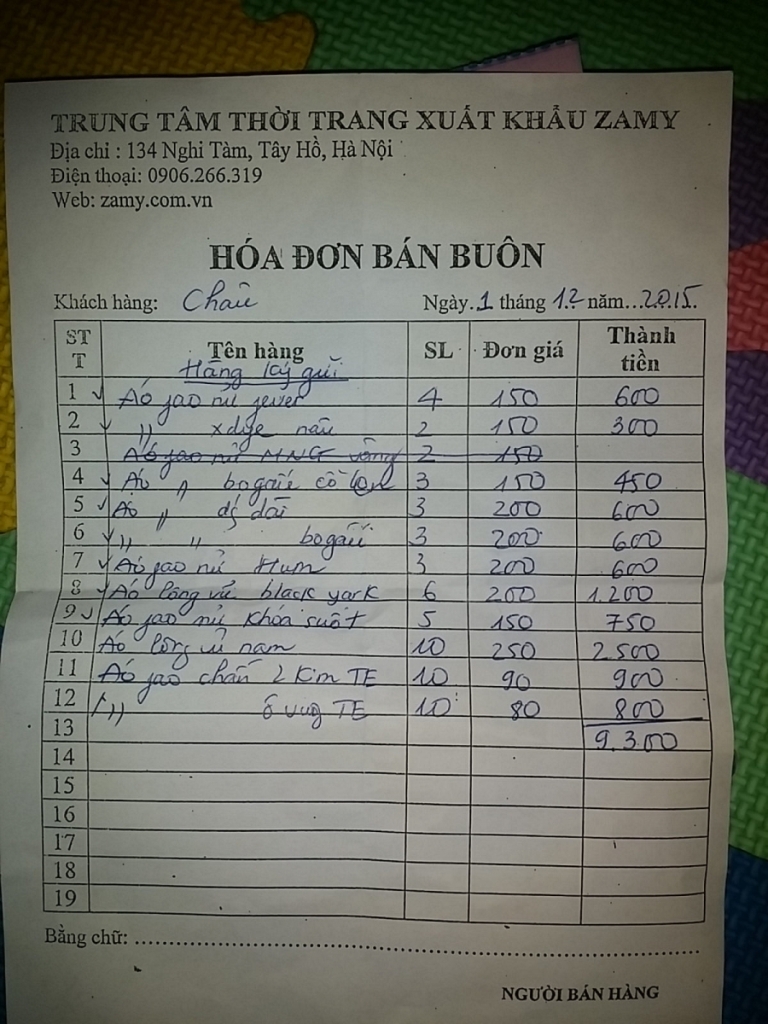 TRUNG TÂM THỜI TRANG XUẤT KHẨU ZAMY
Địa chỉ : 134 Nghi Tàm, Tây Hồ, Hà Nội
Điện thoại: 0906.266.319
Web: zamy.com.vn
HÓA ĐƠN BÁN BUÔN
Khách hàng: Châu Ngày 1 tháng 12 năm...2015.
STT Tên hàng SL Đơn giá Thành tiền
Hàng ký gửi
1 Áo jao nữ 4 150 600
2 " nâu 2 150 300
3 Áo jao nữ MNG 2 150
4 Áo " bogấu cổ 3 150 450
5 Áo " dài 3 200 600
6 " " bogấu 3 200 600
7 Áo jao nữ Hum 3 200 600
8 Áo lông vũ black yark 6 200 1.200
9 Áo jao nữ khóa suốt 5 150 750
10 Áo lông vũ nam 10 250 2500
11 Áo jao chần 2 kim TE 10 90 900
12 " ô vug TE 10 80 800
13 9.300
14
15
16
17
18
19
Bằng chữ:
NGƯỜI BÁN HÀNG